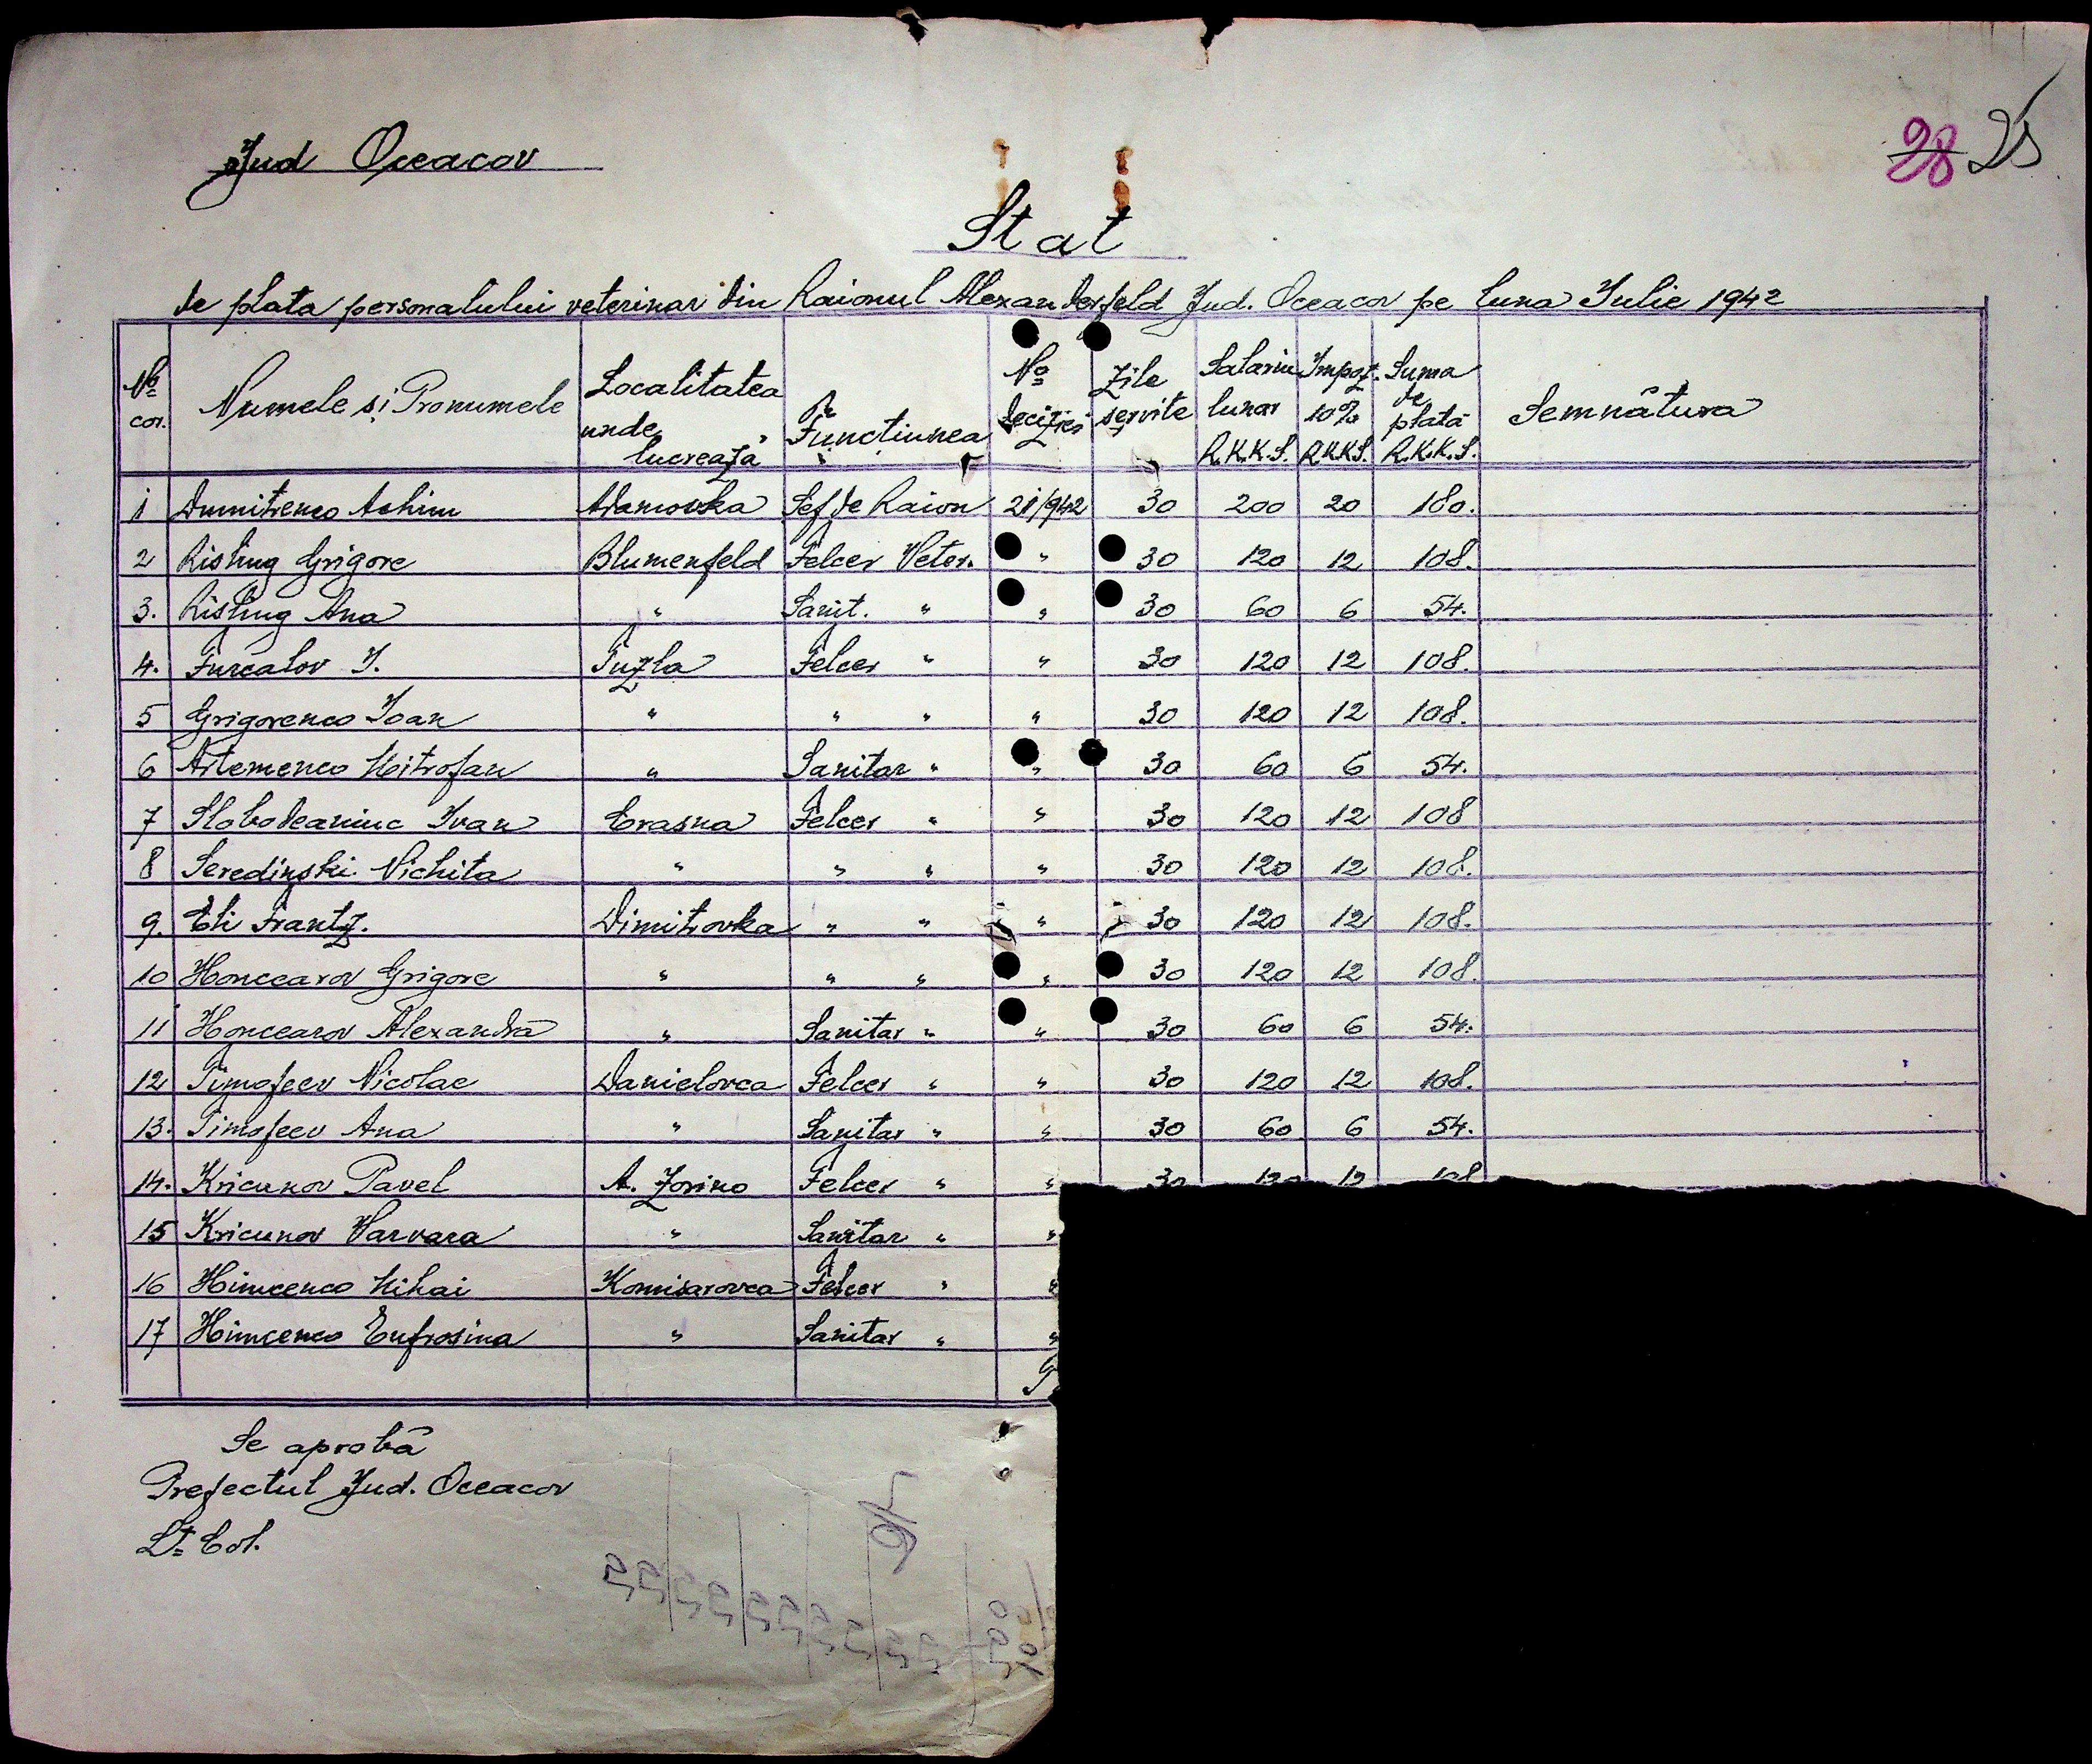 Jud Oceacov
28 25
Stat
de plata personalului veterinar din Raionul Alexanderfeld Jud. Oceacov pe luna Iulie 1942
No cor. Numele și Pronumele Localitatea unde lucrează Funcțiunea No deciziei Zile servite Salariu lunar R.K.K.S. Impoz. 10% R.K.K.S. Suma de plată R.K.K.S. Semnătura
1 Dumitrenco Achim Adamovka Șef de Raion 21/942 30 200 20 180.
2 Risling Grigore Blumenfeld Felcer Veter. " 30 120 12 108.
3. Risling Ana " Sanit. " " 30 60 6 54.
4. Furcalov I. Tuzla Felcer " " 30 120 12 108.
5 Grigorenco Ioan " " " " 30 120 12 108.
6 Artemenco Mitrofan " Sanitar " " 30 60 6 54.
7 Slobodeaniuc Ivan Crasna Felcer " " 30 120 12 108
8 Seredinski Nichita " " " " 30 120 12 108.
9. Eli Frantz. Dimitrovka " " " 30 120 12 108.
10 Honcearov Grigore " " " " 30 120 12 108.
11 Honcearov Alexandra " Sanitar " " 30 60 6 54.
12 Timofeev Nicolae Danielovca Felcer " " 30 120 12 108.
13. Timofeev Ana " Sanitar " " 30 60 6 54.
14. Kricunov Pavel A. Zorino Felcer " " 30 120 12 108
15 Kricunov Varvara " Sanitar " "
16 Himcenco Mihai Komisarovca Felcer " "
17 Himcenco Eufrosina " Sanitar " "
Se aprobă
Prefectul Jud. Oceacov
Lt. Col.